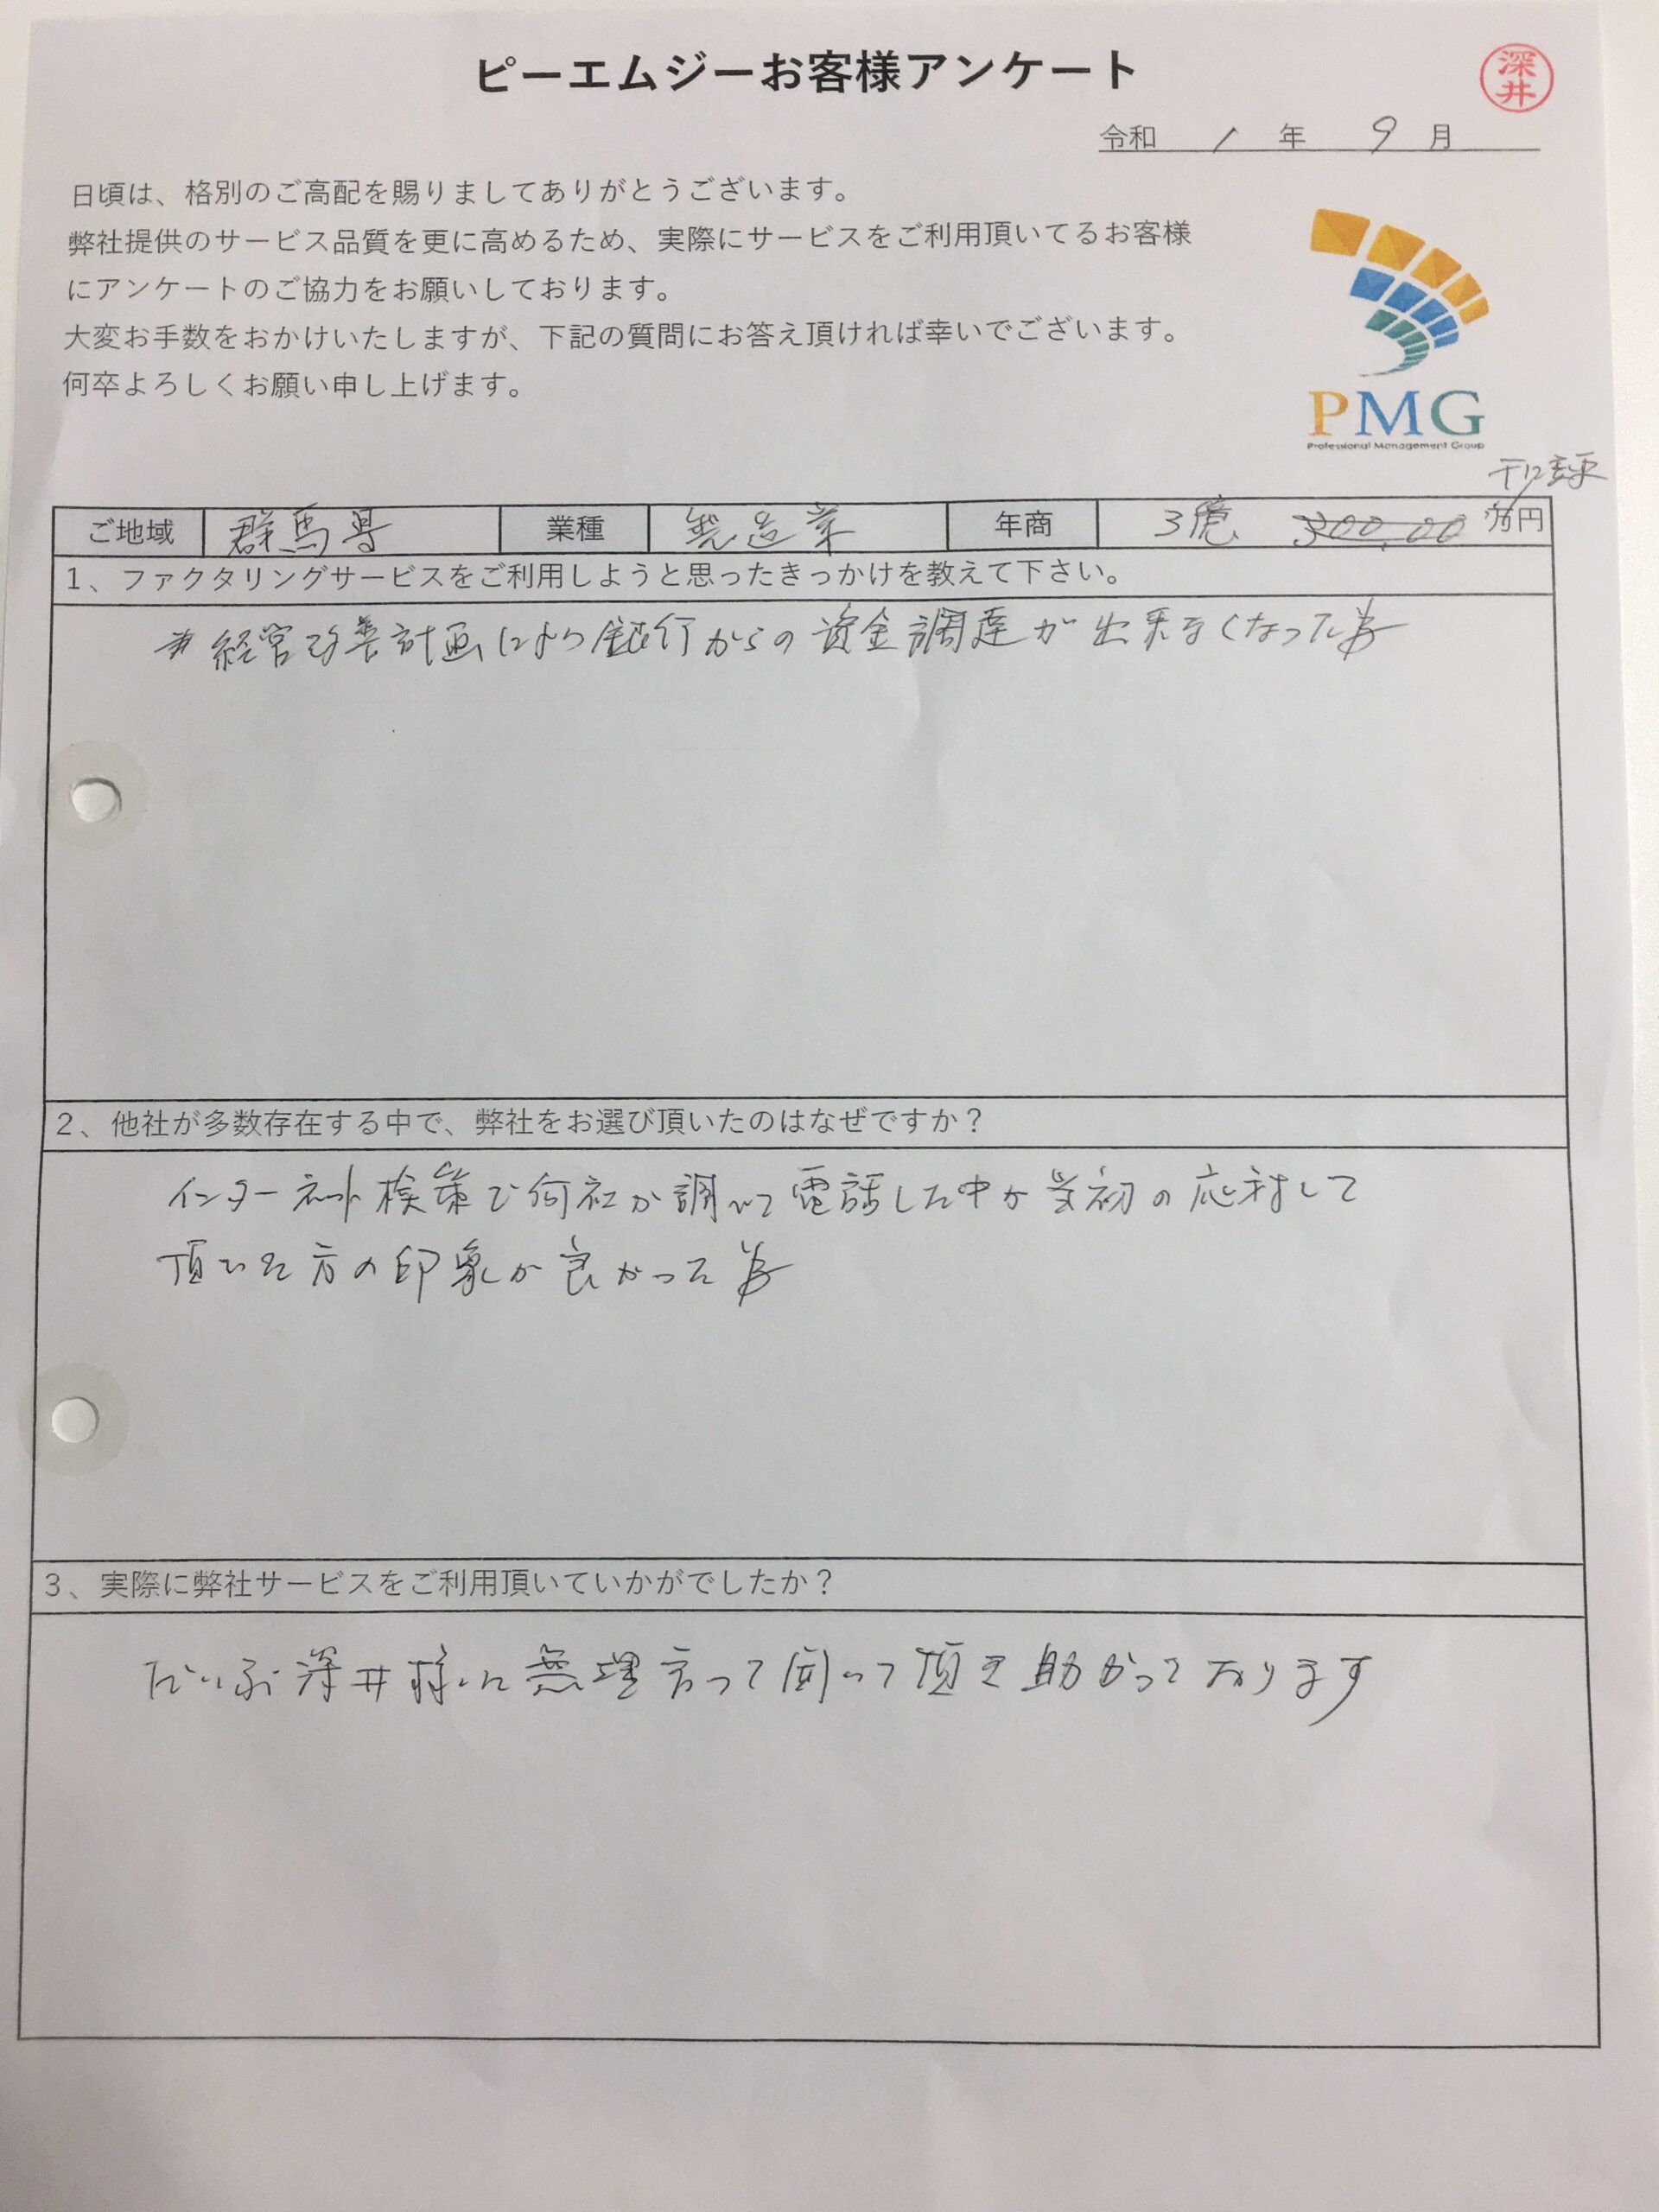 ピーエムジーお客様アンケート
深井
令和 1 年 9 月
日頃は、格別のご高配を賜りましてありがとうございます。
弊社提供のサービス品質を更に高めるため、実際にサービスをご利用頂いてるお客様
にアンケートのご協力をお願いしております。
大変お手数をおかけいたしますが、下記の質問にお答え頂ければ幸いでございます。
何卒よろしくお願い申し上げます。
PMG
Professional Management Group
ご地域 群馬県 業種 製造業 年商 3億 万円
1、ファクタリングサービスをご利用しようと思ったきっかけを教えて下さい。
経営改善計画により銀行からの資金調達が出来なくなった為
2、他社が多数存在する中で、弊社をお選び頂いたのはなぜですか？
インターネット検索で何社か調べて電話した中が当初の応対して
頂いた方の印象が良かった為
3、実際に弊社サービスをご利用頂いていかがでしたか？
だいぶ深井様に無理言って 頂き助かっております